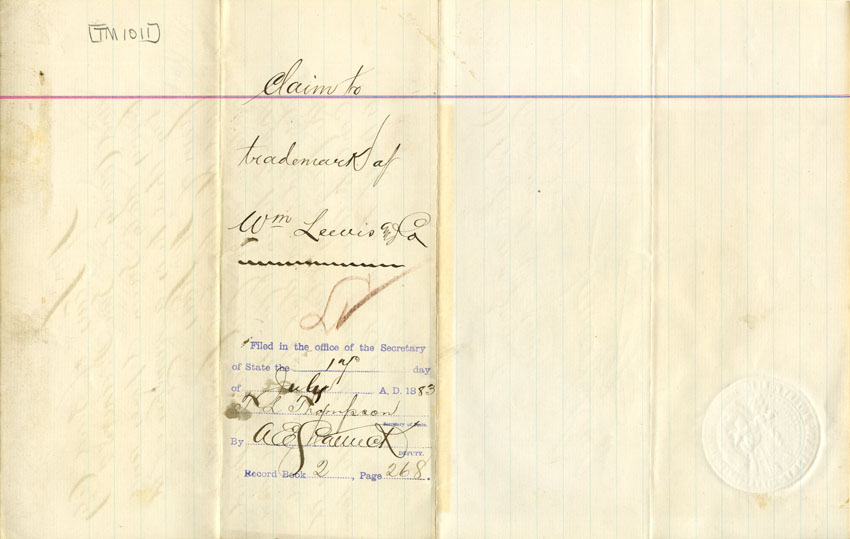 [TM 1011]
Claim to
trademark of
Wm Lewis & Co
Filed in the office of the Secretary
of State the 17 day
of July A. D. 1883
T L Thompson
Secretary of State.
By A E
DEPUTY.
Record Book 2, Page 268.